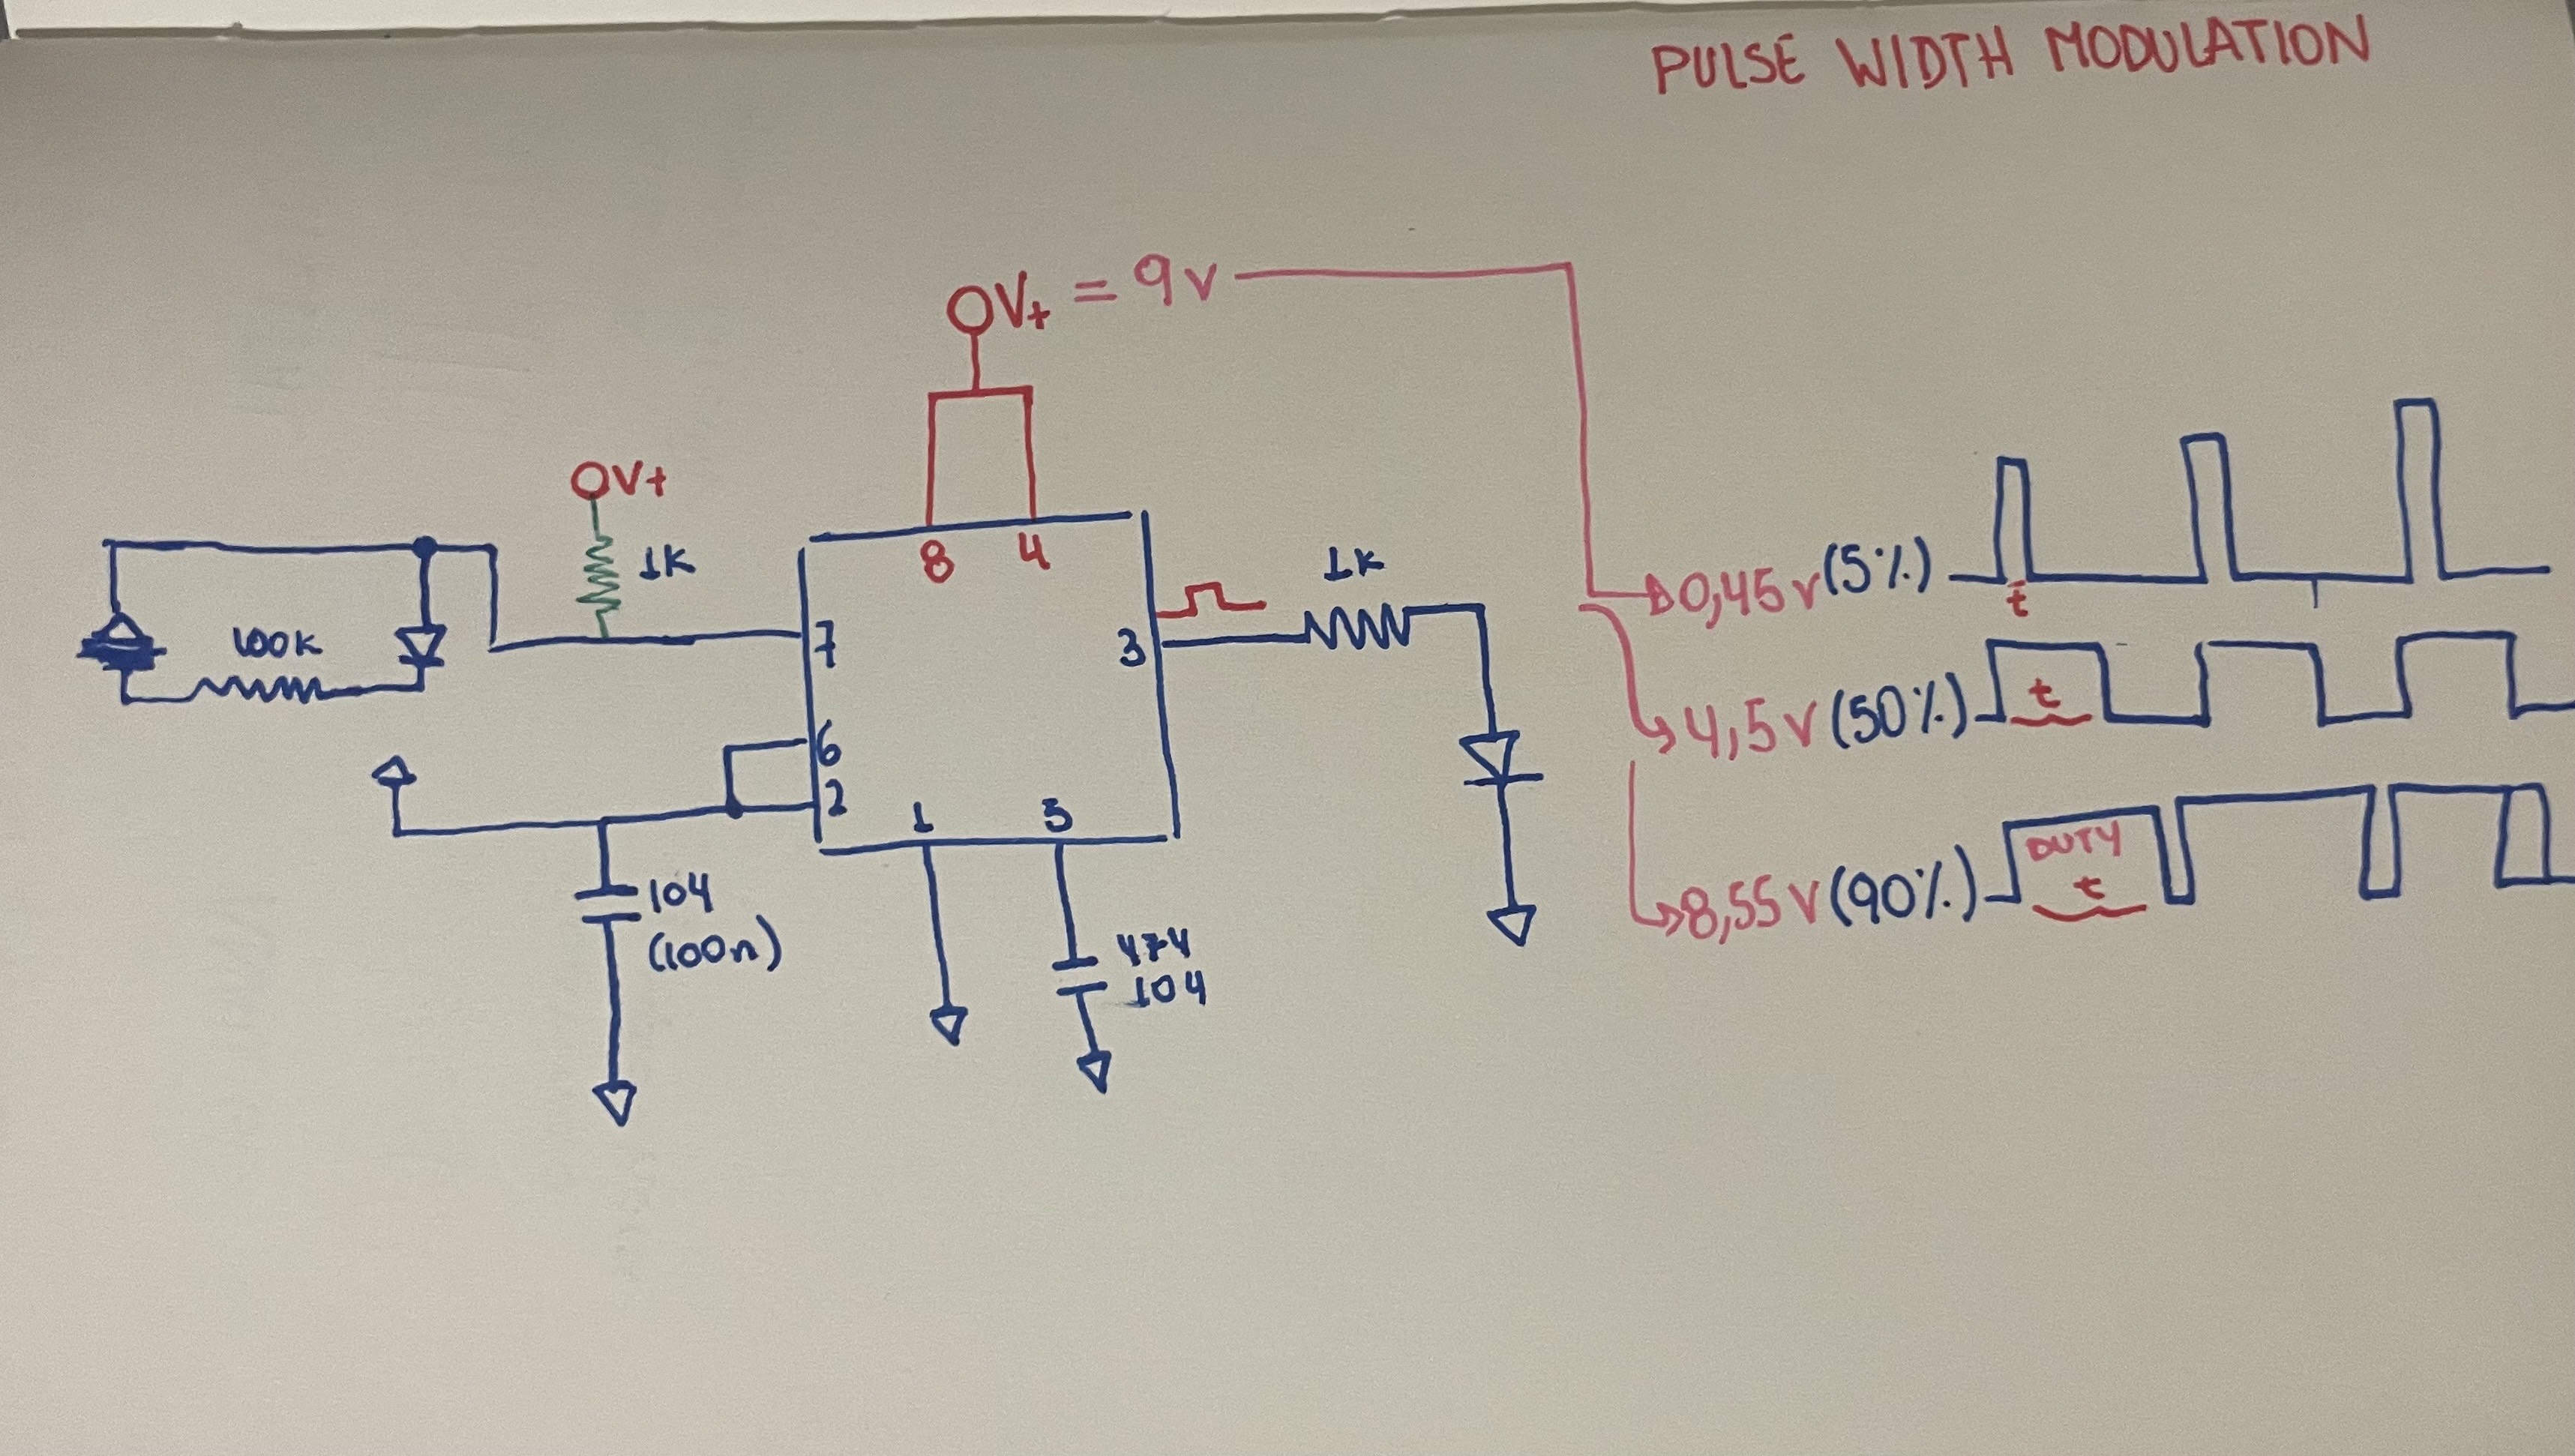 PULSE WIDTH MODULATION
V+ = 9v
V+
1K
100K
8 4
7
6
2
3
1 5
1K
104
(100n)
474
104
0,45v (5%)
t
4,5V (50%)
t
8,55V (90%)
DUTY
t